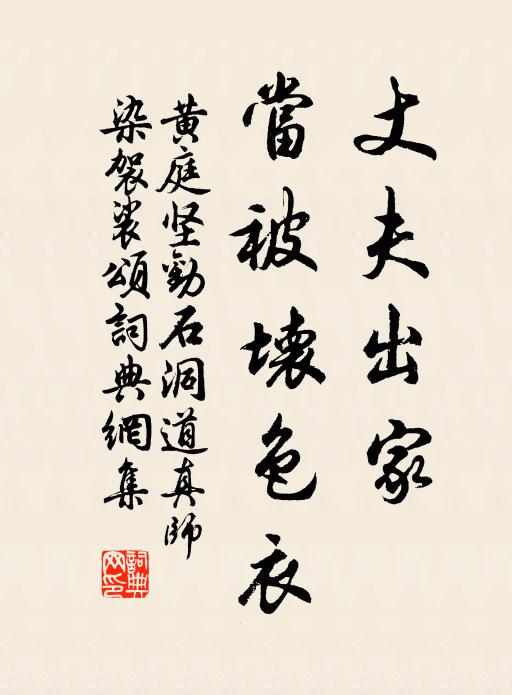 丈夫出家
當被壞色衣
黄庭坚勸石洞道真師
染袈裟頌詞典網集
詞典網印